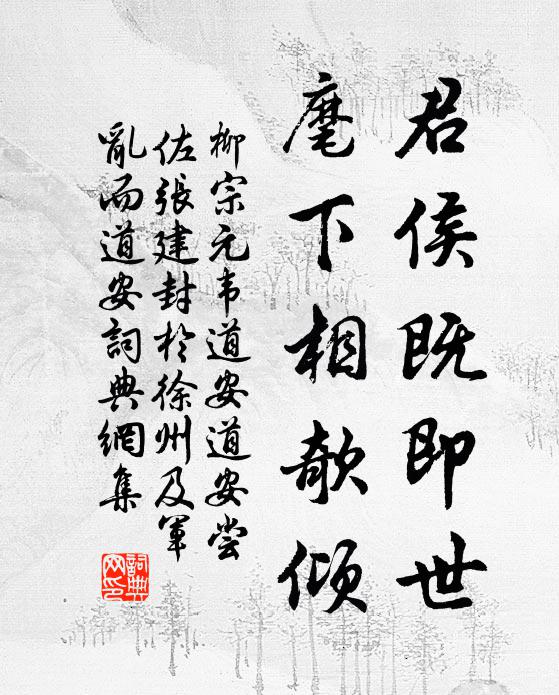 君侯既即世
麾下相欹倾
柳宗元韦道安道安尝
佐張建封於徐州及军
亂而道安詞典網集
詞典网印